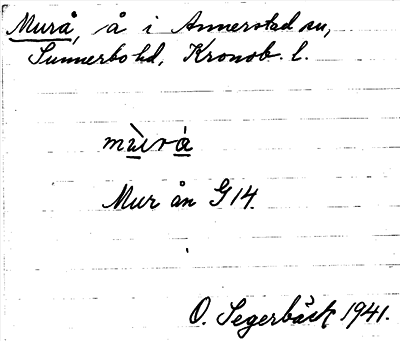 Murå, å i Annerstad sn,
Sunnerbo hd, Kronob. l.
Mur ån G14.
O. Segerbäck 1941.